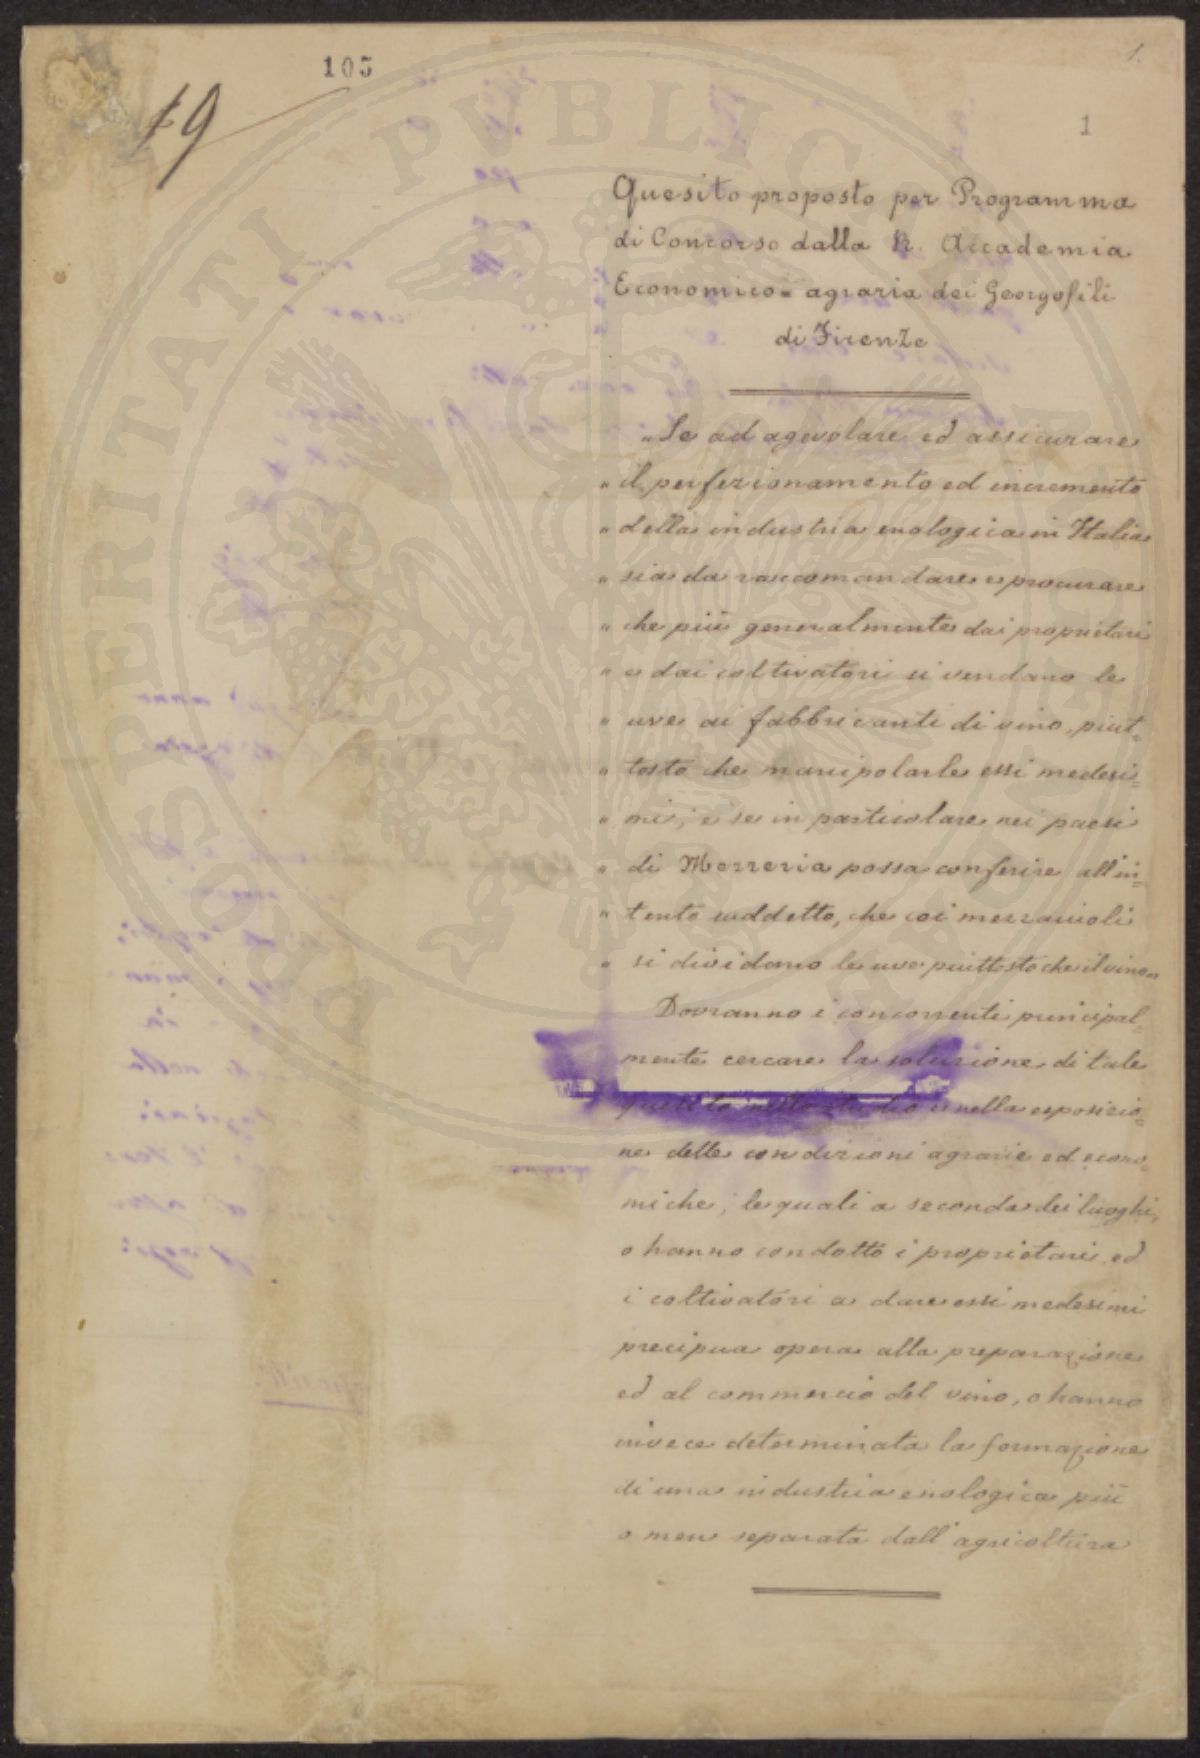 105
19
1.
1
Quesito proposto per Programma
di Concorso dalla R. Accademia
Economico-agraria dei Georgofili
di Firenze
„ Se ad agevolare ed assicurare
„ il perfezionamento ed incremento
„ della industria enologica in Italia
„ sia da raccomandare e procurare
„ che più generalmente dai proprietari
„ e dai coltivatori si vendano le
„ uve ai fabbricanti di vino, piut=
„ tosto che manipolarle essi medesi=
„ mi; e se in particolare nei paesi
„ di Mezzeria possa conferire all'in=
„ tento suddetto, che coi mezzaiuoli
„ si dividano le uve piuttosto che il vino „
Dovranno i concorrenti principal=
mente cercare la soluzione di tale
quesito nello studio e nella esposizio=
ne delle condizioni agrarie ed econo=
miche, le quali a seconda dei luoghi,
o hanno condotto i proprietari ed
i coltivatori a dare essi medesimi
precipua opera alla preparazione
ed al commercio del vino, o hanno
invece determinata la formazione
di una industria enologica più
o men separata dall'agricoltura
PROSPERITATI PVBLICAE